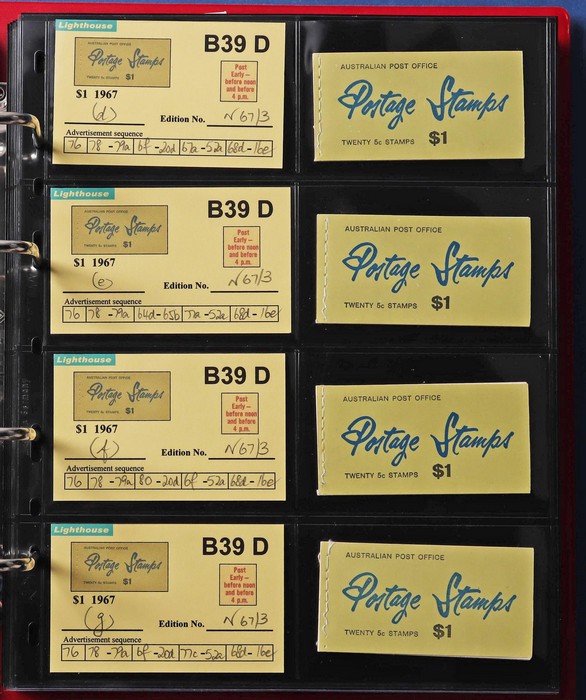 Lighthouse
AUSTRALIAN POST OFFICE
Postage Stamps
TWENTY 5c STAMPS $1
B39 D
Post
Early —
before noon
and before
4 p.m.
$1 1967
(d)
Edition No. N67/3
Advertisement sequence
76 | 78 - 79a | 6f - 20d | 67a - 52a | 68d - 16e
AUSTRALIAN POST OFFICE
Postage Stamps
TWENTY 5c STAMPS $1
Lighthouse
AUSTRALIAN POST OFFICE
Postage Stamps
TWENTY 5c STAMPS $1
B39 D
Post
Early —
before noon
and before
4 p.m.
$1 1967
(e)
Edition No. N67/3
Advertisement sequence
76 | 78 - 79a | 64d - 65b | 77a - 52a | 68d - 16e
AUSTRALIAN POST OFFICE
Postage Stamps
TWENTY 5c STAMPS $1
Lighthouse
AUSTRALIAN POST OFFICE
Postage Stamps
TWENTY 5c STAMPS $1
B39 D
Post
Early —
before noon
and before
4 p.m.
$1 1967
(f)
Edition No. N67/3
Advertisement sequence
76 | 78 - 79a | 80 - 20d | 6f - 52a | 68d - 16e
AUSTRALIAN POST OFFICE
Postage Stamps
TWENTY 5c STAMPS $1
Lighthouse
AUSTRALIAN POST OFFICE
Postage Stamps
TWENTY 5c STAMPS $1
B39 D
Post
Early —
before noon
and before
4 p.m.
$1 1967
(g)
Edition No. N67/3
Advertisement sequence
76 | 78 - 79a | 6f - 20d | 77c - 52a | 68d - 16e
AUSTRALIAN POST OFFICE
Postage Stamps
TWENTY 5c STAMPS $1